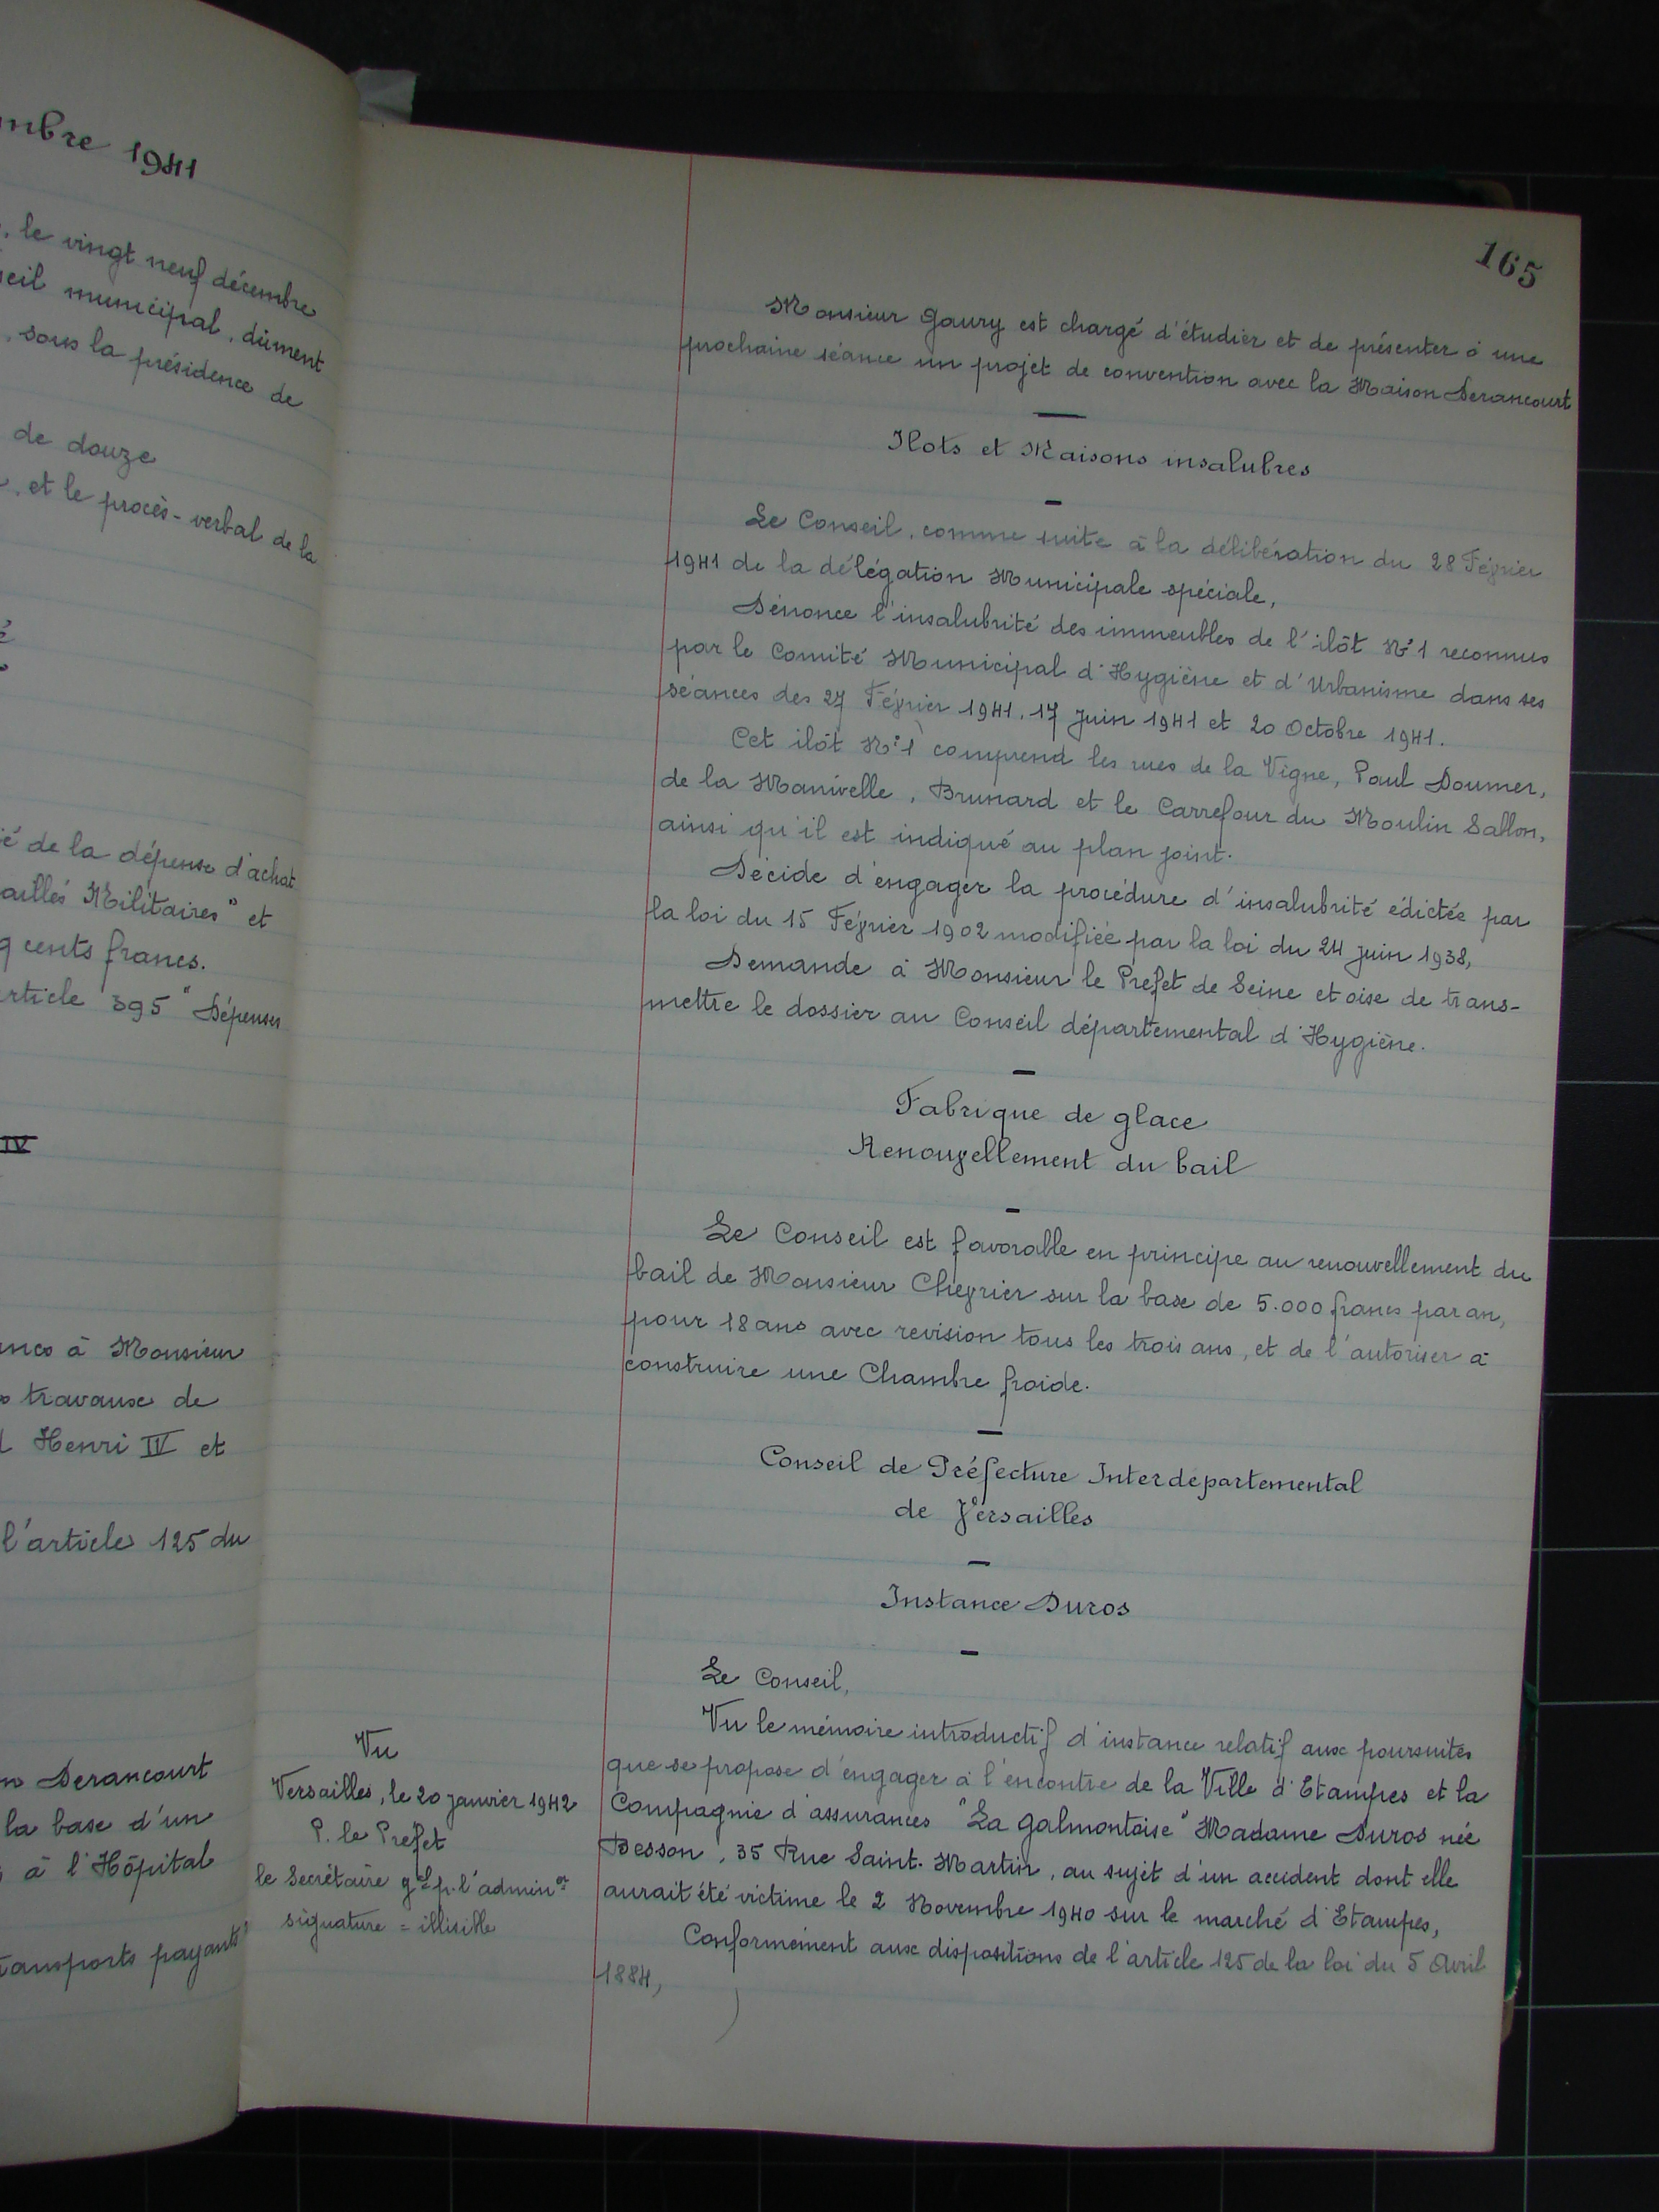 mbre 1941
, le vingt neuf décembre
seil municipal, dûment
, sous la présidence de
de douze
, et le procès-verbal de la
é de la dépense d'achat
ailles Militaires" et
q cents francs.
article 395 "Dépenses
IV
ancs à Monsieur
s travaux de
Henri IV et
l'article 125 du
n Derancourt
la base d'un
à l'Hôpital
ransports payants"
165
Monsieur Gaury est chargé d'étudier et de présenter à une
prochaine séance un projet de convention avec la Maison Derancourt
Ilots et Maisons insalubres
Le Conseil, comme suite à la délibération du 28 Février
1941 de la délégation Municipale spéciale,
Dénonce l'insalubrité des immeubles de l'ilôt N°1 reconnus
par le Comité Municipal d'Hygiène et d'Urbanisme dans ses
séances des 27 Février 1941, 17 Juin 1941 et 20 Octobre 1941.
Cet ilôt N°1 comprend les rues de la Vigne, Paul Doumer,
de la Manivelle, Brunard et le Carrefour du Moulin Sablon,
ainsi qu'il est indiqué au plan joint.
Décide d'engager la procédure d'insalubrité édictée par
la loi du 15 Février 1902 modifiée par la loi du 24 Juin 1938,
Demande à Monsieur le Préfet de Seine et oise de trans-
mettre le dossier au Conseil départemental d'Hygiène.
Fabrique de glace
Renouvellement du bail
Le Conseil est favorable en principe au renouvellement du
bail de Monsieur Chevrier sur la base de 5.000 francs par an,
pour 18 ans avec revision tous les trois ans, et de l'autoriser à
construire une Chambre froide.
Conseil de Préfecture Interdepartemental
de Versailles
Instance Duros
Le Conseil,
Vu le mémoire introductif d'instance relatif aux poursuites
que se propose d'engager à l'encontre de la Ville d'Etampes et la
Compagnie d'assurances "La Galmontoise" Madame Duros née
Besson, 35 Rue Saint-Martin, au sujet d'un accident dont elle
aurait été victime le 2 Novembre 1940 sur le marché d'Etampes,
Conformément aux dispositions de l'article 125 de la loi du 5 Avril
1884,
Vu
Versailles, le 20 Janvier 1942
P. le Préfet
le Secrétaire gal p. l'adminon
signature = illisible